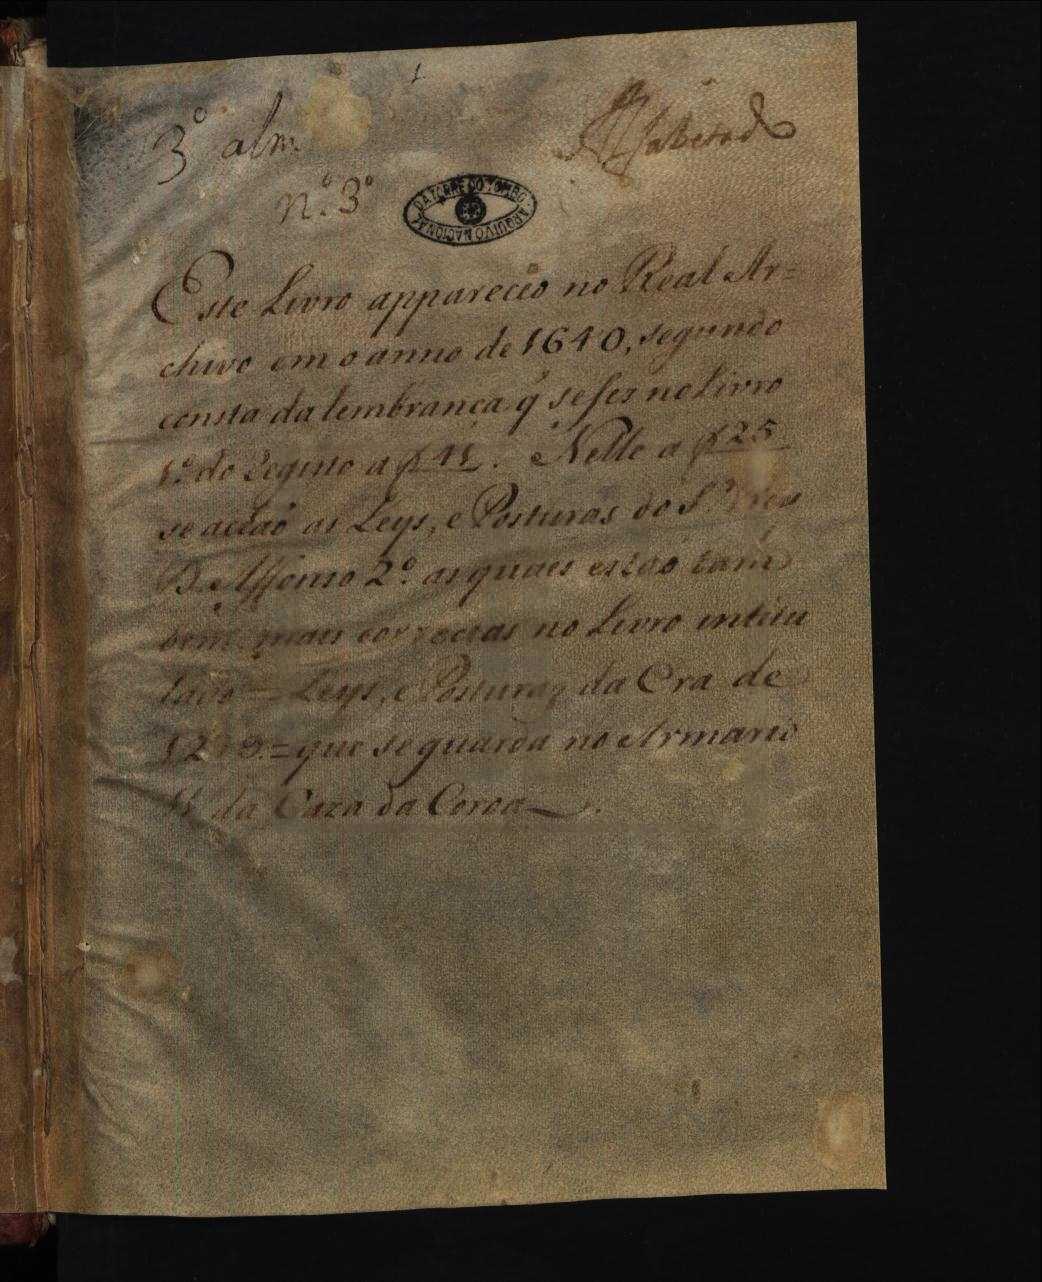 1
3º alm.
nº. 3º
DA TORRE DO TOMBO
ARQUIVO NACIONAL
Este Livro appareceo no Real Ar=
chivo em o anno de 1640, segundo
consta da lembrança q̃ se fes no Livro
1º. do Registo a f 41. Nelle a f 25
se achaõ as Leys, e Posturas do S.r Rey
D. Affonso 2º. as quaes estaõ tam
bem mais correctas no Livro intitu
lado = Leys, e Posturas da Era de
= que se guarda no Armario
da Caza da Coroa.